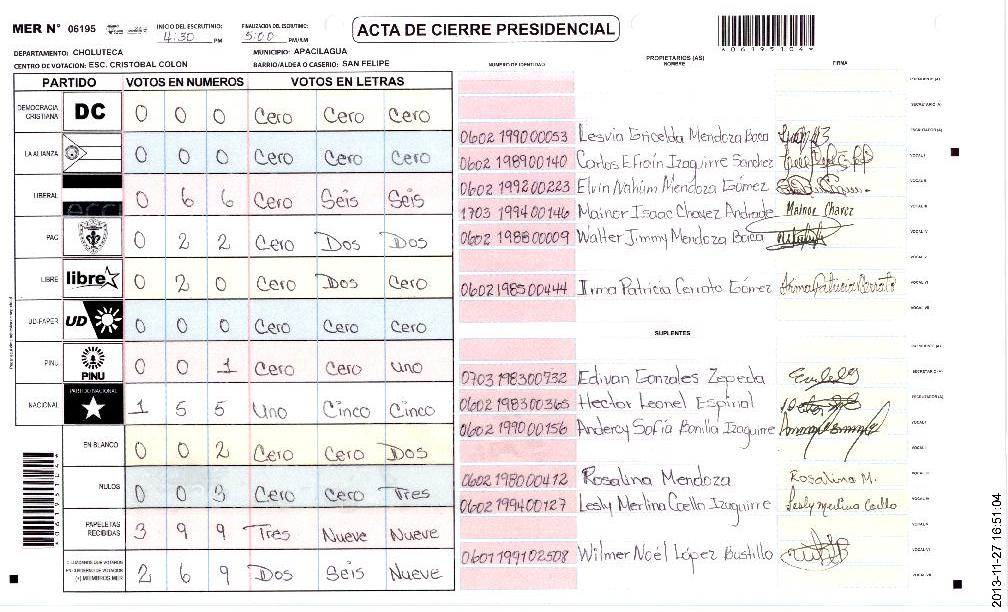 MER N° 06195
INICIO DEL ESCRUTINIO:
4:30 PM
FINALIZACION DEL ESCRUTINIO:
5:00 PM/AM
ACTA DE CIERRE PRESIDENCIAL
*0619510 4*
DEPARTAMENTO: CHOLUTECA
MUNICIPIO: APACILAGUA
CENTRO DE VOTACION: ESC. CRISTOBAL COLON
BARRIO/ALDEA O CASERIO: SAN FELIPE
PARTIDO VOTOS EN NUMEROS VOTOS EN LETRAS
DEMOCRACIA CRISTIANA DC 0 0 0 Cero Cero Cero
LA ALIANZA 0 0 0 Cero Cero Cero
LIBERAL 0 6 6 Cero Seis Seis
PAC 0 2 2 Cero Dos Dos
LIBRE libre 0 2 0 Cero Dos Cero
UD-FAPER UD 0 0 0 Cero Cero Cero
PINU PINU 0 0 1 Cero Cero uno
NACIONAL PARTIDO NACIONAL 1 5 5 Uno Cinco Cinco
EN BLANCO 0 0 2 Cero Cero Dos
NULOS 0 0 3 Cero Cero Tres
PAPELETAS RECIBIDAS 3 9 9 Tres Nueve Nueve
(+) MIEMBROS MER 2 6 9 Dos Seis Nueve
NUMERO DE IDENTIDAD
PROPIETARIOS (AS)
NOMBRE
FIRMA
PRESIDENTE (A)
SECRETARIO (A)
0602 1990 00053 Lesvia Gricelda Mendoza Baca ESCRUTADOR (A)
0602 1989 00140 Carlos Efraín Izaguirre Sanchez VOCAL I
0602 1992 00223 Elvin Nahúm Mendoza Gómez VOCAL II
1703 1994 00146 Mainor Isaac Chavez Andrade Mainor Chavez VOCAL III
0602 1988 00009 Walter Jimmy Mendoza Baca VOCAL IV
VOCAL V
0602 1985 00444 Irma Patricia Cerrato Gómez Irma Patricia Cerrato VOCAL VI
VOCAL VII
SUPLENTES
PRESIDENTE (A)
0703 1983 00732 Edivan Gonzales Zepeda SECRETARIO (A)
0602 1983 00365 Hector Leonel Espinal ESCRUTADOR (A)
0602 1990 00156 Andercy Sofía Bonilla Izaguirre VOCAL I
VOCAL II
0602 1980 00412 Rosalina Mendoza Rosalina M. VOCAL III
0602 1994 00127 Lesly Merlina Coello Izaguirre Lesly merlina Coello VOCAL IV
VOCAL V
0601 1991 02508 Wilmer Noél López Bustillo VOCAL VI
VOCAL VII
2013-11-27 16:51:04